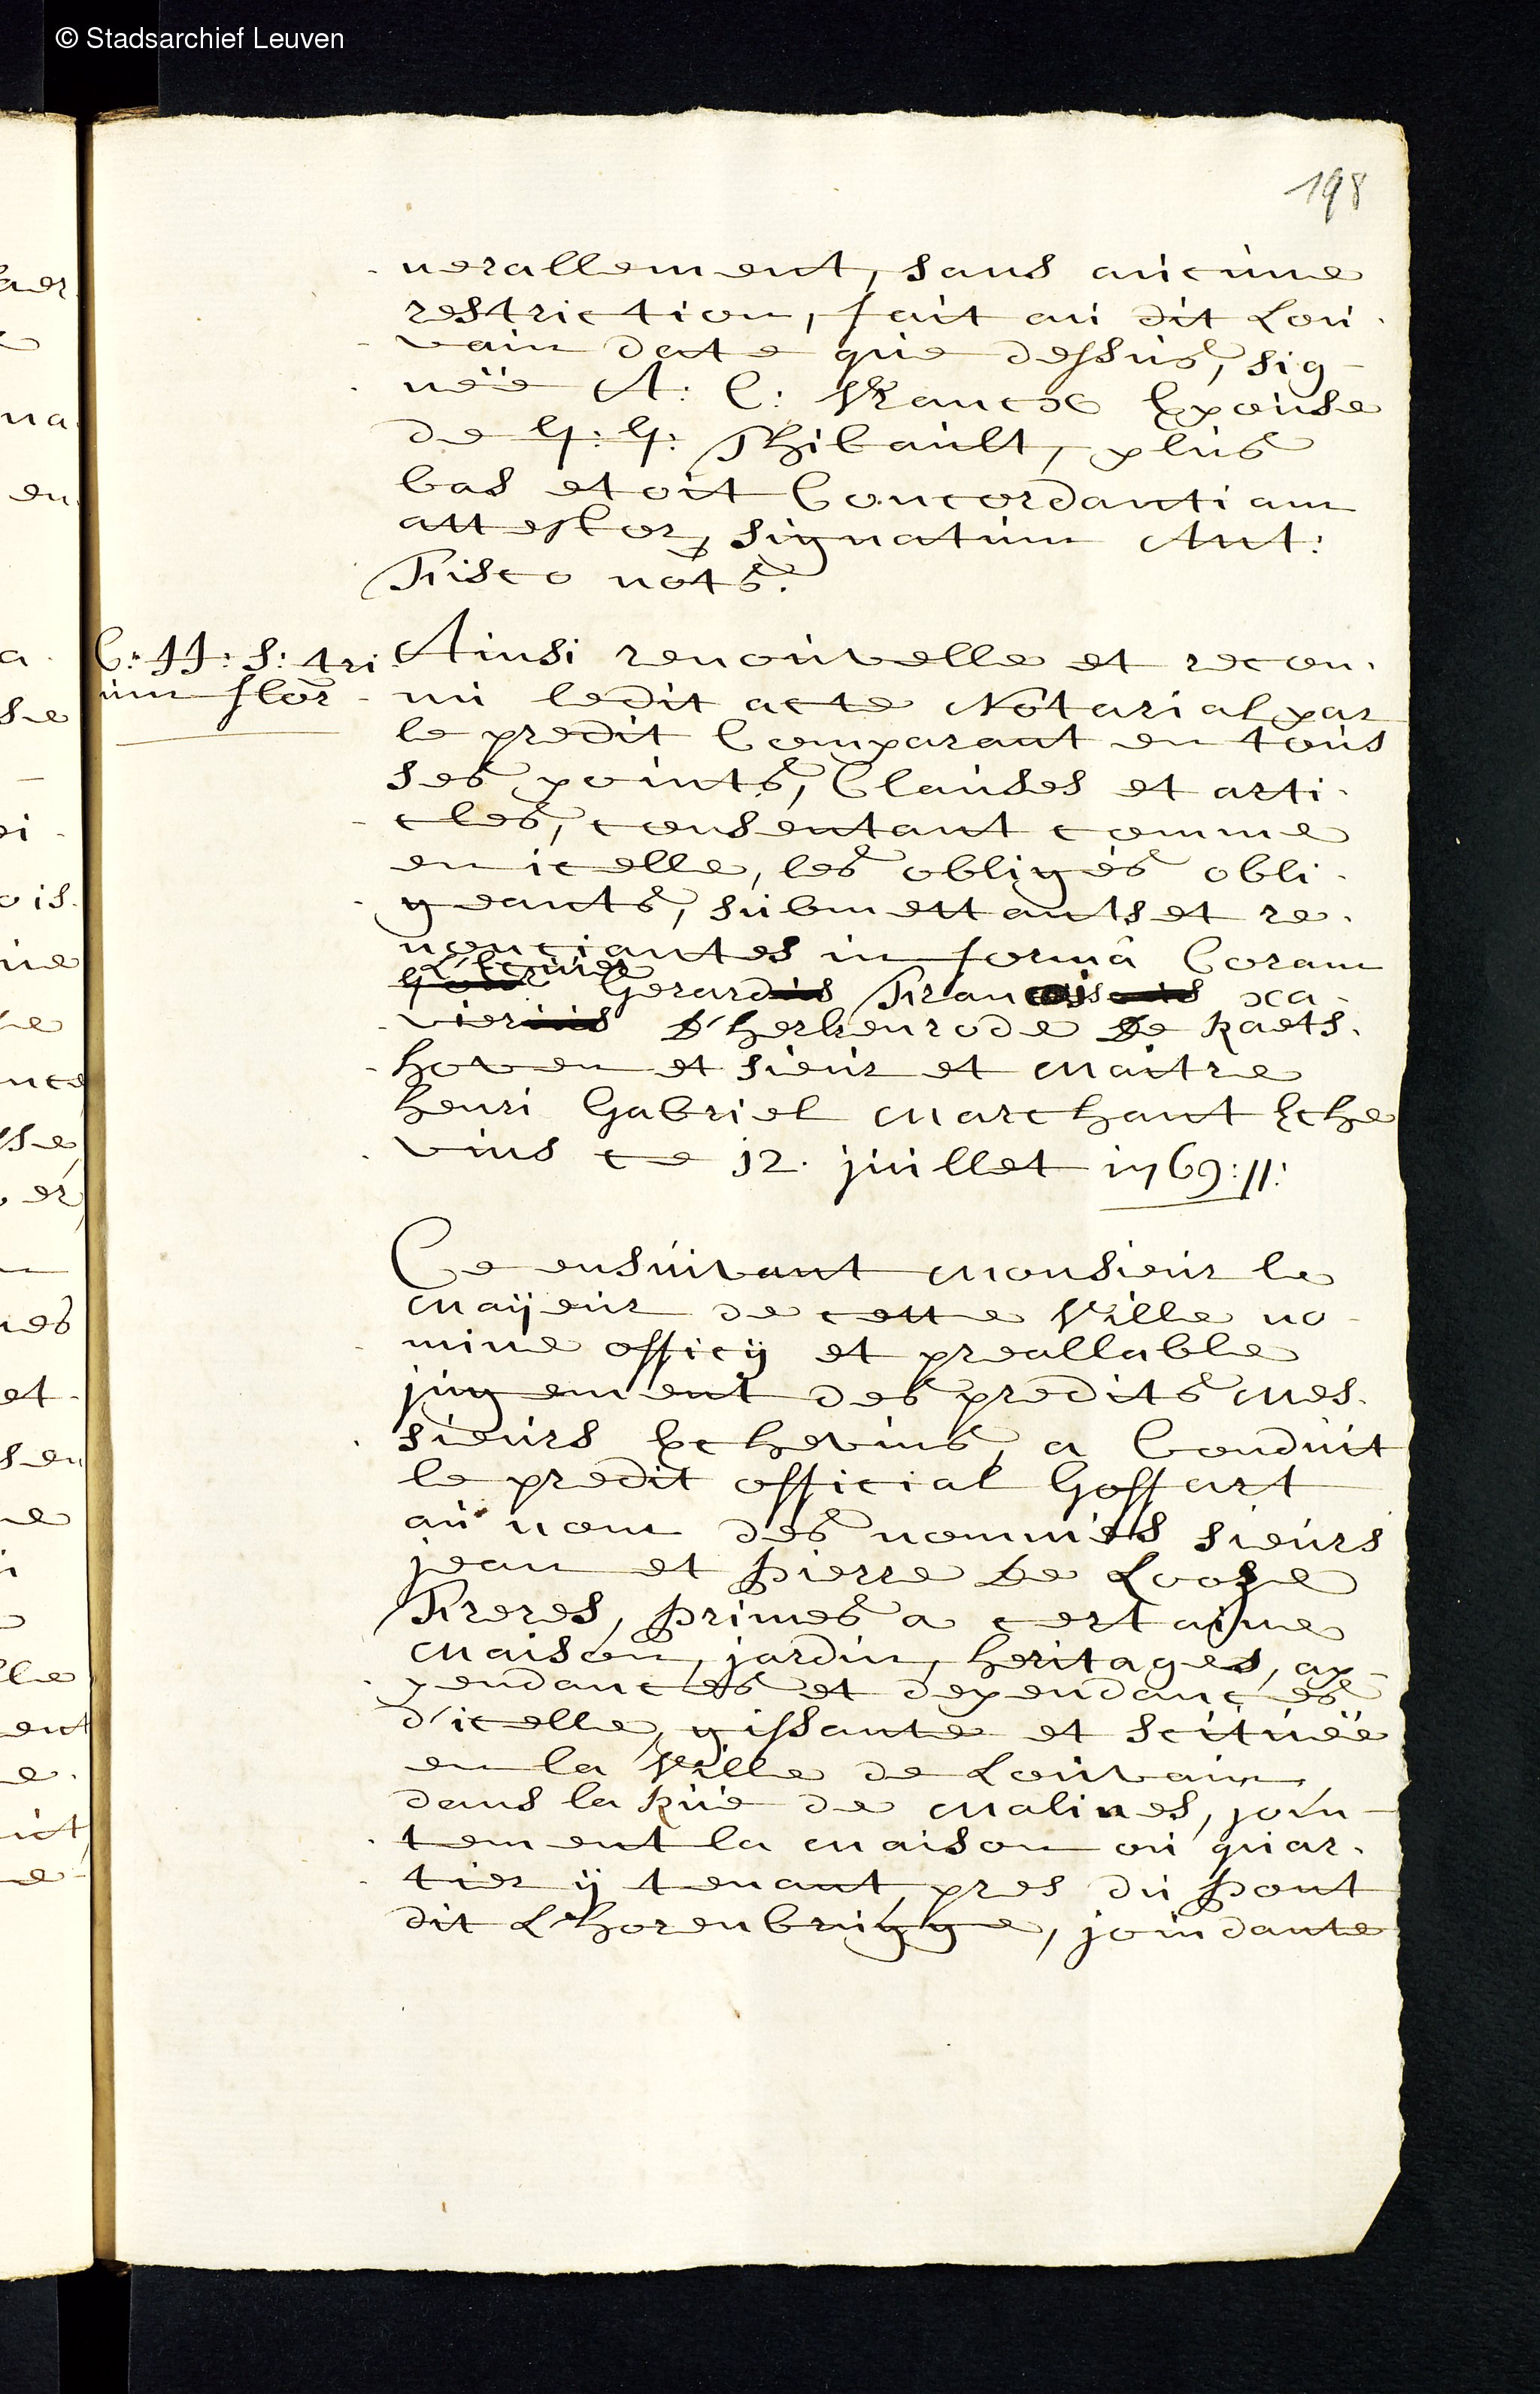 © Stadsarchief Leuven
198
nerallement, sans aucune
restriction, fait au dit Lou
vain date que dessus, sig-
née A: C: Vrancx Epouse
de G: G: Thibault, plus
bas etoit Concordantiam
attestor, signatum Ant:
Fisco nots.
C: H: S: tri
um flor
Ainsi renouvelle et recon
nu ledit acte Notarial par
le predit Comparant en tous
ses points, Clauses et arti
cles, consentant comme
en icelle, les obligés obli
geants, submettants et re
nonciantes in formâ Coram
Gerard Francois xa
vier D'herkenrode De Raets
hoven et sieur et Maitre
henri Gabriel Marchant Eche
vins ce 12. juillet 1769://:
Ce ensuivant Monsieur le
Maÿeur de cette Ville no
mine officÿ et preallable
jugement des predits Mes
sieurs Echevins, a Conduit
le predit official Goffart
au nom des nommés sieurs
jean et pierre De Looze
Freres, primes a certaine
Maison, jardin, heritages, ap-
pendances et dependances
d'icelle, gissante et scituée
en la Ville de Louvain,
dans la Rüe de Malines, join-
tement la maison ou quar
tier ÿ tenant, pres du pont
dit L'horenbrugge, joindante